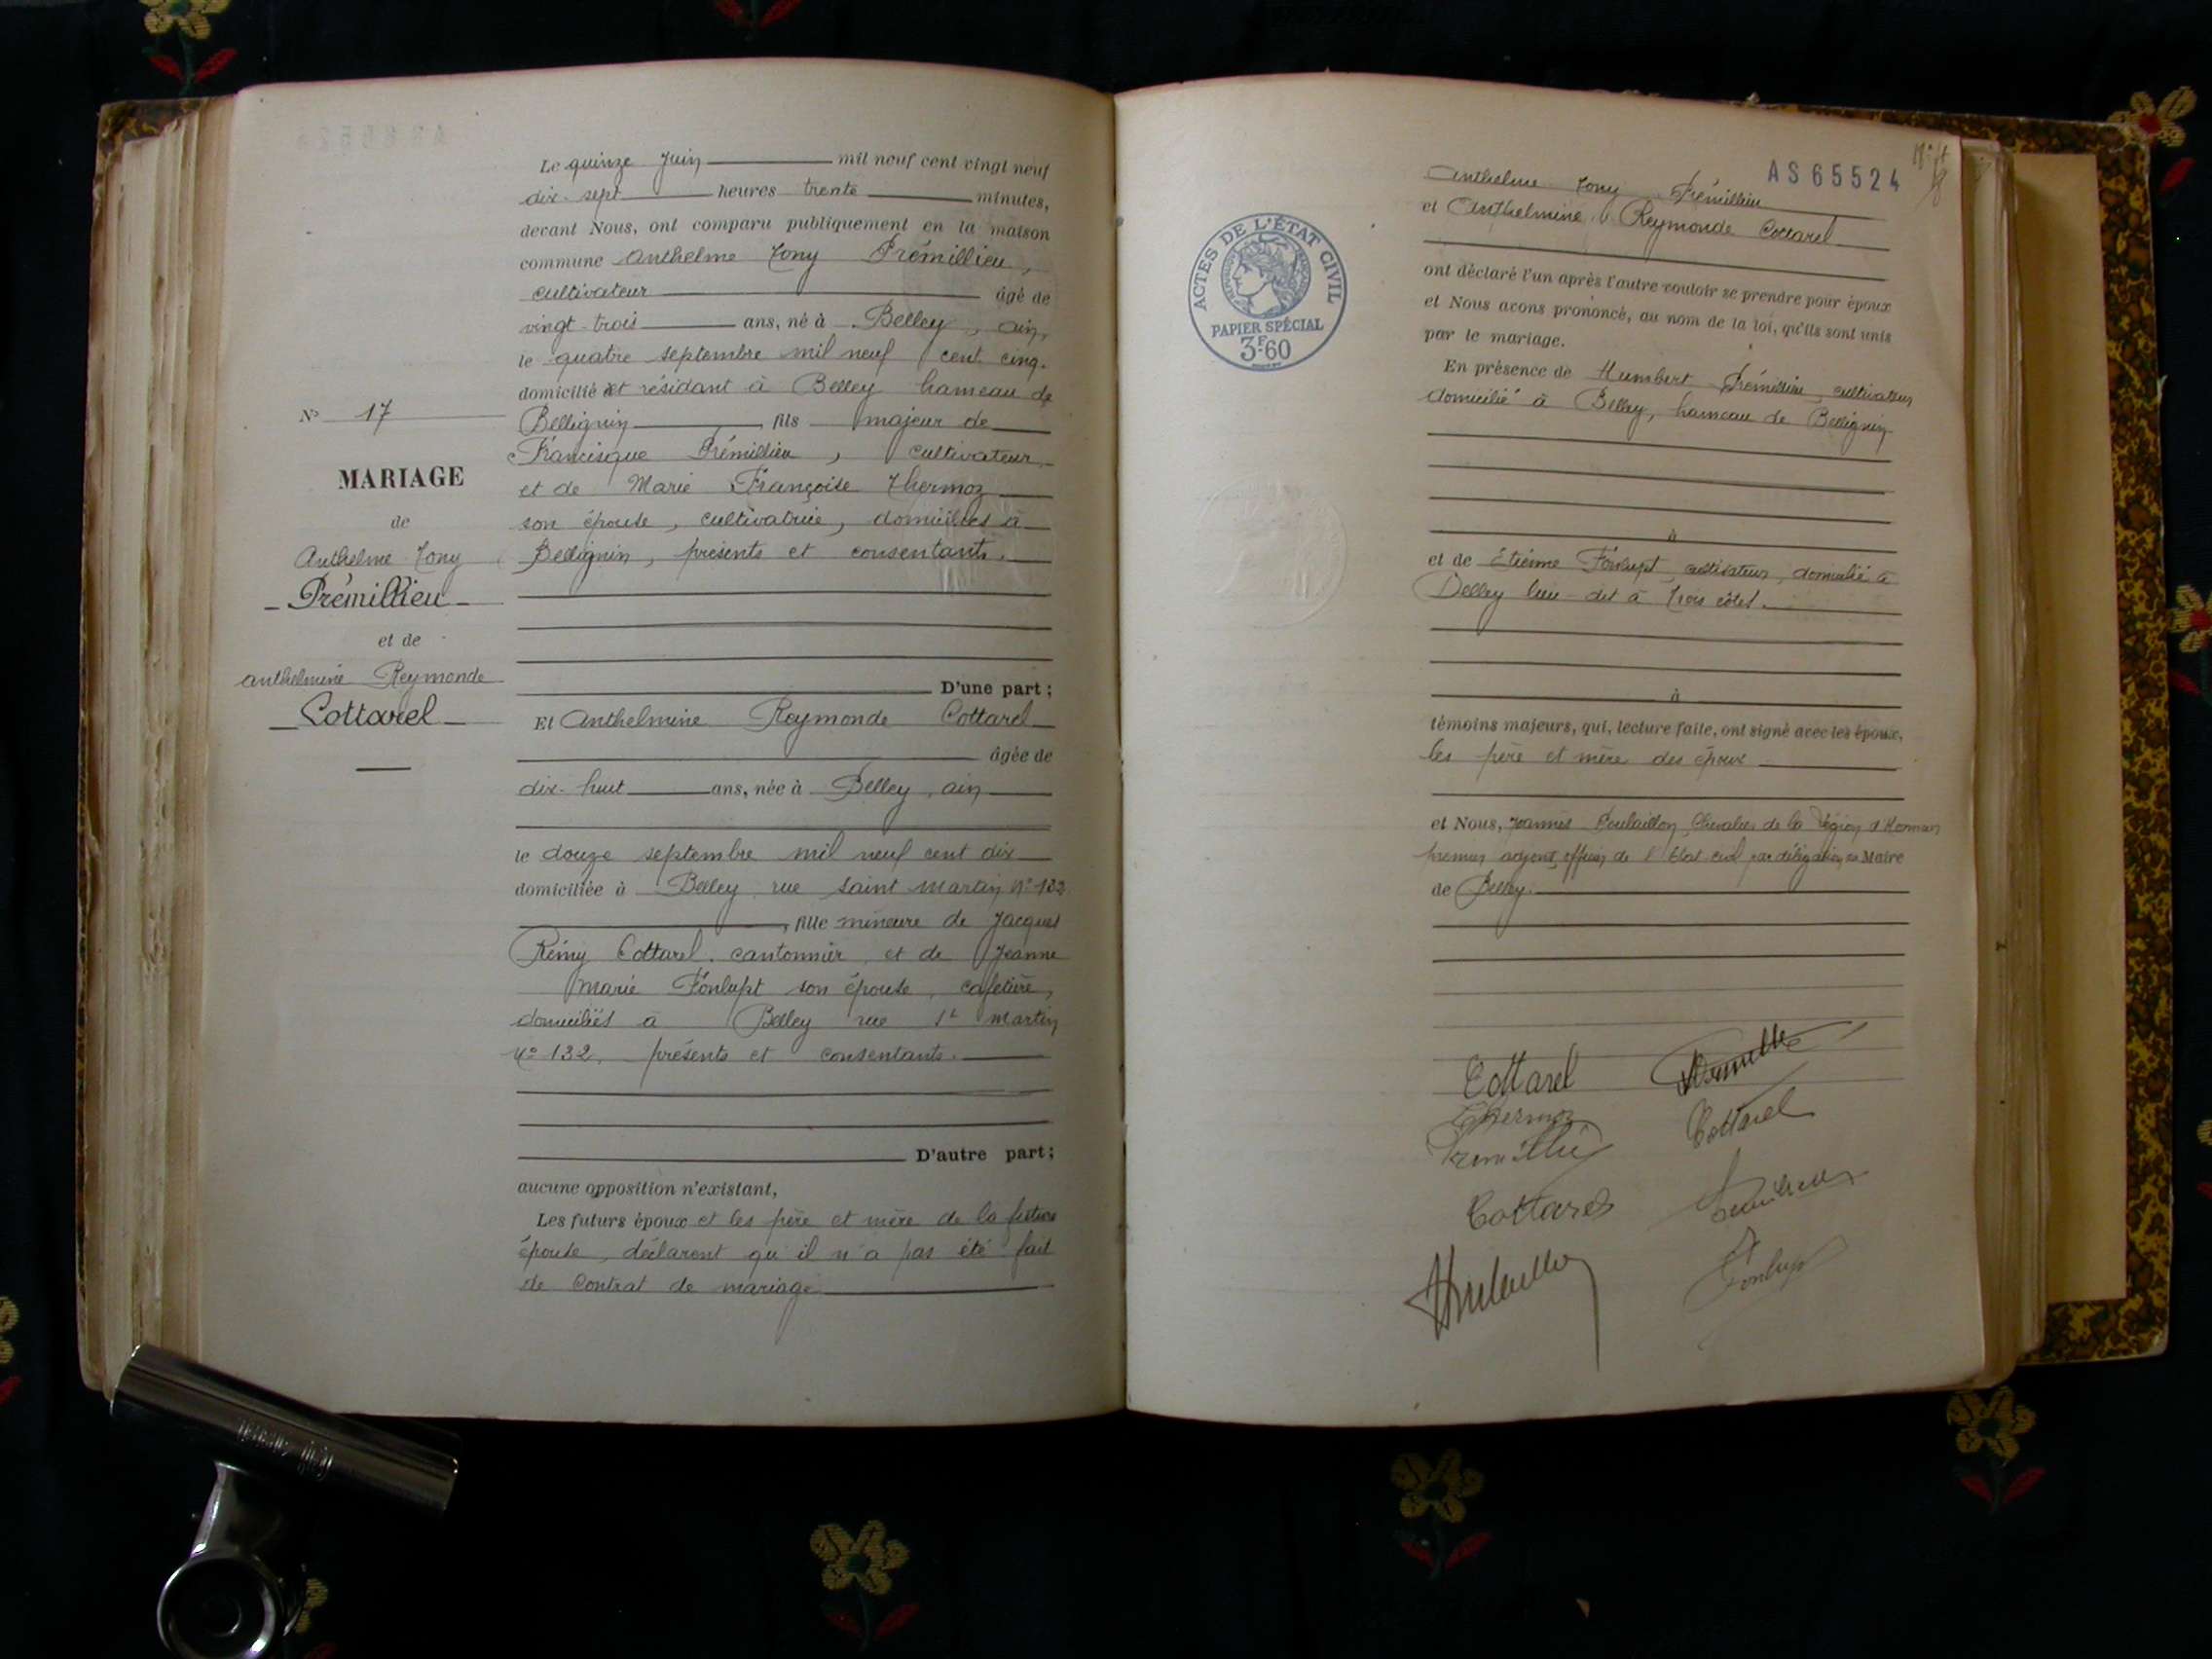 Le quinze Juin mil neuf cent vingt neuf
dix-sept heures trente minutes,
devant Nous, ont comparu publiquement en la maison
commune Anthelme Tony Prémillieu,
cultivateur âgé de
vingt-trois ans, né à Belley, ain,
le quatre septembre mil neuf cent cinq.
domicilié et résidant à Belley hameau de
Bellignin fils majeur de
Francisque Prémillieu, cultivateur
et de Marie Françoise Thermoz
son épouse, cultivatrice, domiciliés à
Bellignin, présents et consentants.
D'une part;
Et Anthelmine Reymonde Cottarel
âgée de
dix-huit ans, née à Belley, ain
le douze septembre mil neuf cent dix
domiciliée à Belley rue saint Martin N° 132
, fille mineure de Jacques
Rémy Cottarel, cantonnier et de Jeanne
Marie Fonlupt son épouse, cafetière,
domiciliés à Belley rue St Martin
N° 132, présents et consentants.
D'autre part;
aucune opposition n'existant,
Les futurs époux et les père et mère de la future
épouse, déclarent qu'il n'a pas été fait
de Contrat de mariage
N° 17
MARIAGE
de
Anthelme Tony
Prémillieu
et de
anthelmine Reymonde
Cottarel
AS65524
Anthelme Tony Prémillieu
et Anthelmine Reymonde Cottarel
ont déclaré l'un après l'autre vouloir se prendre pour époux
et Nous avons prononcé, au nom de la loi, qu'ils sont unis
par le mariage.
En présence de Humbert Prémillieu, cultivateur
domicilié à Belley, hameau de Bellignin
à
et de Etienne Fonlupt, cultivateur, domicilié à
Belley lieu-dit à trois côtes.
à
témoins majeurs, qui, lecture faite, ont signé avec les époux,
les père et mère des époux
et Nous, Joannès Poulaillon, Chevalier de la Légion d'Honneur
premier adjoint, officier de l'Etat civil par délégation, Maire
de Belley.
ACTES DE L'ÉTAT CIVIL
PAPIER SPÉCIAL
3F60
Cottarel
Thermoz
Cottarel
Cottarel
Fonlupt